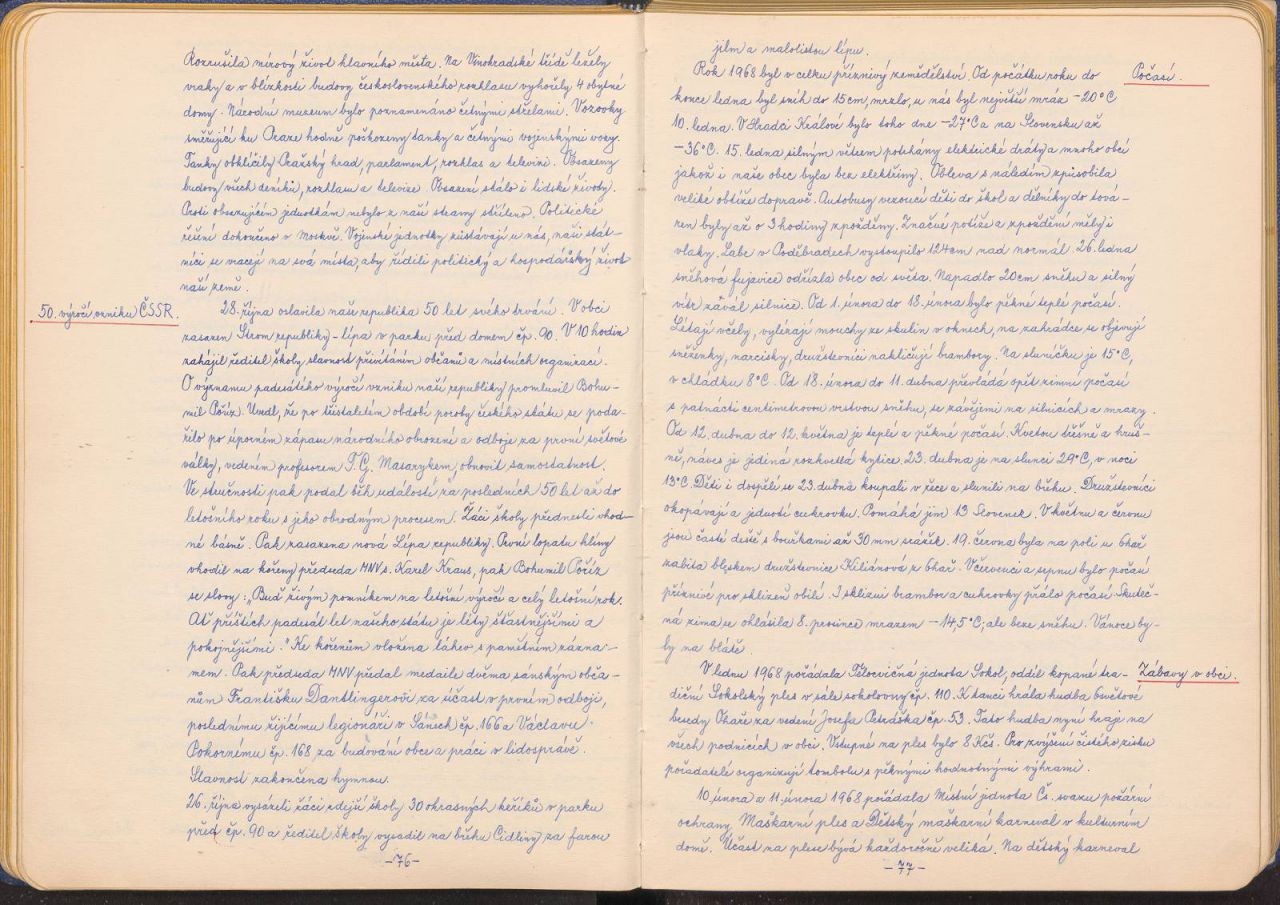 Rozrušila mírový život hlavního města. Na Vinohradské třídě ležely
vraky a v blízkosti budovy československého rozhlasu vyhořely 4 obytné
domy. Národní museum bylo poznamenáno četnými střelami. Vozovky
směřující ku Praze hodně poškozeny tanky a četnými vojenskými vozy.
Tanky obklíčily Pražský hrad, parlament, rozhlas a televizi. Obsazeny
budovy všech deníků, rozhlasu a televize. Obsazení stálo i lidské životy.
Proti obsazujícím jednotkám nebylo z naší strany stříleno. Politické
řešení dokončeno v Moskvě. Vojenské jednotky zůstávají u nás, naši stát-
níci se vracejí na svá místa, aby řídili politický a hospodářský život
naší země.
50. výročí vzniku ČSSR.
28. října oslavila naše republika 50 let svého trvání. V obci
zasazen Strom republiky - lípa v parku před domem čp. 90. V 10 hodin
zahájil ředitel školy slavnost přivítáním občanů a místních organizací.
O významu padesátého výročí vzniku naší republiky promluvil Bohu-
mil Pőříz. Uvedl, že po třistaletém období poroby českého státu se poda-
řilo po úporném zápasu národního obrození a odboje za první světové
války, vedeném profesorem T. G. Masarykem, obnovit samostatnost.
Ve stručnosti pak podal běh událostí za posledních 50 let až do
letošního roku s jeho obrodným procesem. Žáci školy přednesli vhod-
né básně. Pak zasazena nová Lípa republiky. První lopatu hlíny
vhodil na kořeny předseda MNV s. Karel Kraus, pak Bohumil Pőříz
se slovy: „Buď živým pomníkem na letošní výročí a celý letošní rok.
Ať příštích padesát let našeho státu je léty šťastnějšími a
pokojnějšími." Ke kořenům vložena láhev s pamětním zázna-
mem. Pak předseda MNV předal medaile dvěma sánským obča-
nům Františku Dantlingerovi za účast v prvním odboji,
poslednímu žijícímu legionáři v Sánech čp. 166 a Václavu
Pokornému čp. 168 za budování obce a práci v lidosprávě.
Slavnost zakončena hymnou.
26. října vysázeli žáci zdejší školy 30 okrasných keříků v parku
před čp. 90 a ředitel školy vysadil na břehu Cidliny za farou
-76-
jilm a malolistou lípu.
Počasí.
Rok 1968 byl v celku příznivý zemědělství. Od počátku roku do
konce ledna byl sníh do 15cm, mrzlo, u nás byl největší mráz -20°C
10. ledna. V Hradci Králové bylo toho dne -27°C a na Slovensku až
-36°C. 15. ledna silným větrem potrhány elektrické dráty a mnoho obcí
jakož i naše obec byla bez elektřiny. Obleva s náledím způsobila
veliké obtíže dopravě. Autobusy vezoucí děti do škol a dělníky do tová-
ren byly až o 3 hodiny zpožděny. Značné potíže a zpoždění měly i
vlaky. Labe v Poděbradech vystoupilo 124cm nad normál. 26. ledna
sněhová fujavice odřízla obec od světa. Napadlo 20cm sněhu a silný
vítr zavál silnice. Od 1. února do 18. února bylo pěkné teplé počasí.
Létají včely, vylézají mouchy ze skulin v oknech, na zahrádce se objevují
sněženky, narcisky, družstevníci nakličují brambory. Na sluníčku je 15°C,
v chládku 8°C. Od 18. února do 11. dubna převládá opět zimní počasí
s patnácti centimetrovou vrstvou sněhu, se závějemi na silnicích a mrazy.
Od 12. dubna do 12. května je teplé a pěkné počasí. Kvetou třešně a hruš-
ně, náves je jediná rozkvetlá kytice. 23. dubna je na slunci 29°C, v noci
13°C. Děti i dospělí se 23. dubna koupali v řece a slunili na břehu. Družstevníci
okopávají a jednotí cukrovku. Pomáhá jim 13 Slovenek. V květnu a červnu
jsou časté deště s bouřkami až 30 mm srážek. 19. června byla na poli u Obař
zabita bleskem družstevnice Kiliánová z Obař. V červenci a srpnu bylo počasí
příznivé pro sklizeň obilí. I sklizni brambor a cukrovky přálo počasí. Skuteč-
ná zima se ohlásila 8. prosince mrazem -14,5°C, ale beze sněhu. Vánoce by-
ly na blátě.
Zábavy v obci.
V lednu 1968 pořádala Tělocvičná jednota Sokol, oddíl kopané tra-
diční Sokolský ples v sále sokolovny čp. 110. K tanci hrála hudba Osvětové
besedy Obaře za vedení Josefa Petráška čp. 53. Tato hudba nyní hraje na
všech podnicích v obci. Vstupné na ples bylo 8 Kčs. Pro zvýšení čistého zisku
pořadatelé organizují tombolu s pěknými hodnotnými výhrami.
10. února a 11. února 1968 pořádala Místní jednota Čs. svazu požární
ochrany Maškarní ples a Dětský maškarní karneval v kulturním
domě. Účast na plese bývá každoročně veliká. Na dětský karneval
-77-